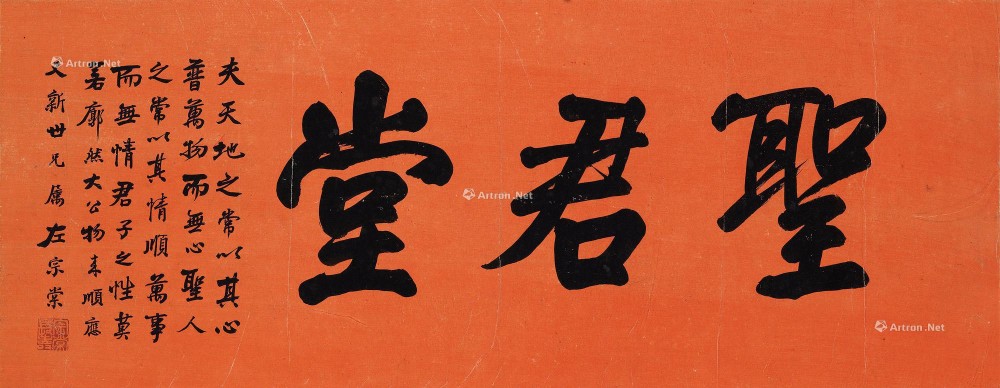 聖君堂
夫天地之常以其心
普萬物而無心聖人
之常以其情順萬事
而無情君子之性莫
若廓然大公物来順應
文新世兄属左宗棠
Artron.Net
Artron.Net
Artron.Net